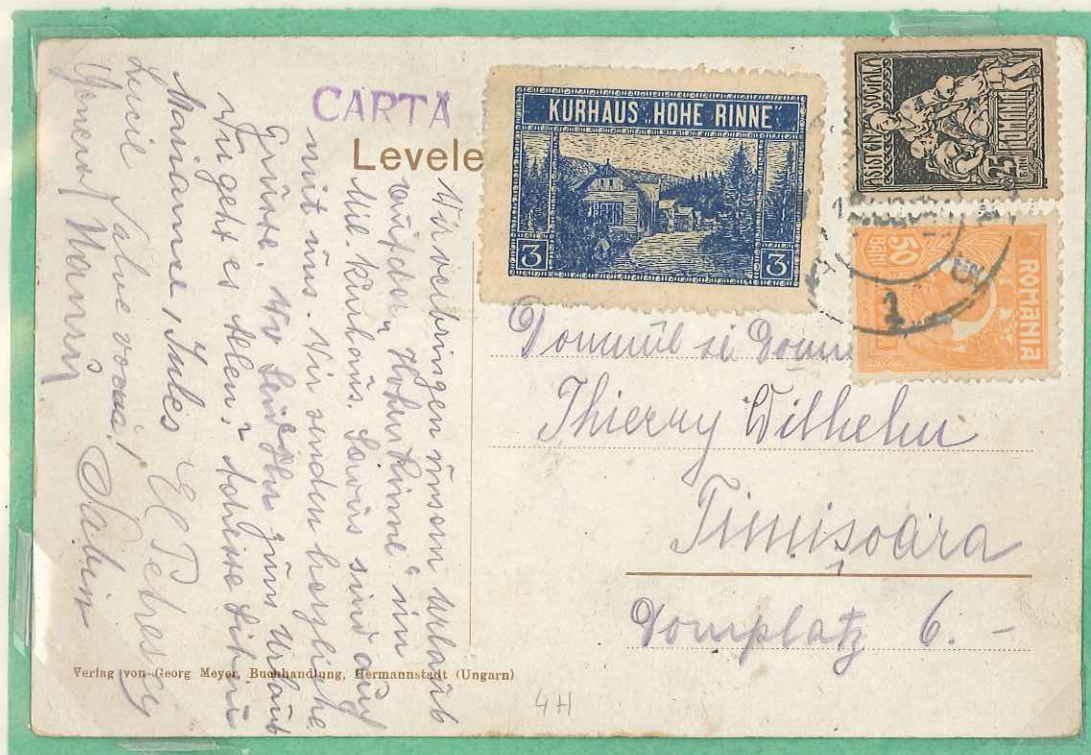 CARTA
Levele
KURHAUS "HOHE RINNE"
3 3
ASISTENȚA SOCIALA
25 BANI
ROMANIA
50 BANI
ROMANIA
1
Domnul si Domn
Thierry Wilhelm
Timisoara
Domplatz 6.-
Wir verbringen unsern Urlaub
auf der „Hohe Rinne" im
Mil. Kurhaus. Savus sind auf
mit uns. Wir senden herzliche
Grüsse. Wo seid Ihr zum Urlaub
Wie geht es Allen? Adresse Sibiu
Marianne, Jules El. Petrescu
Lucie Salve vouă! Sabin
General Manniu
Verlag von Georg Meyer, Buchhandlung, Hermannstadt (Ungarn)
4H